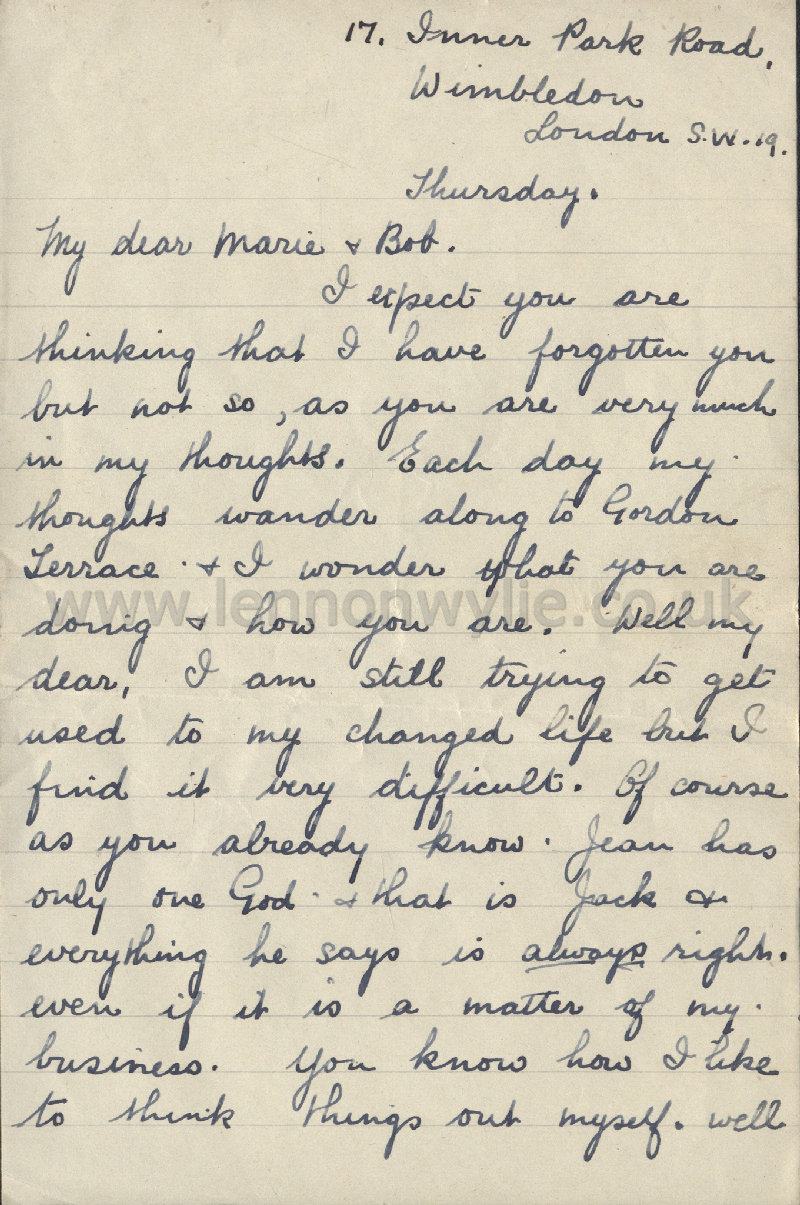 17. Inner Park Road,
Wimbledon
London S.W.19.
Thursday.
My dear Marie & Bob.
I expect you are
thinking that I have forgotten you
but not so, as you are very much
in my thoughts. Each day my
thoughts wander along to Gordon
Terrace & I wonder what you are
www.lennonwylie.co.uk
doing & how you are. Well my
dear, I am still trying to get
used to my changed life but I
find it very difficult. Of course
as you already know. Jean has
only one God & that is Jack &
everything he says is always right.
even if it is a matter of my
business. You know how I like
to think things out myself. well